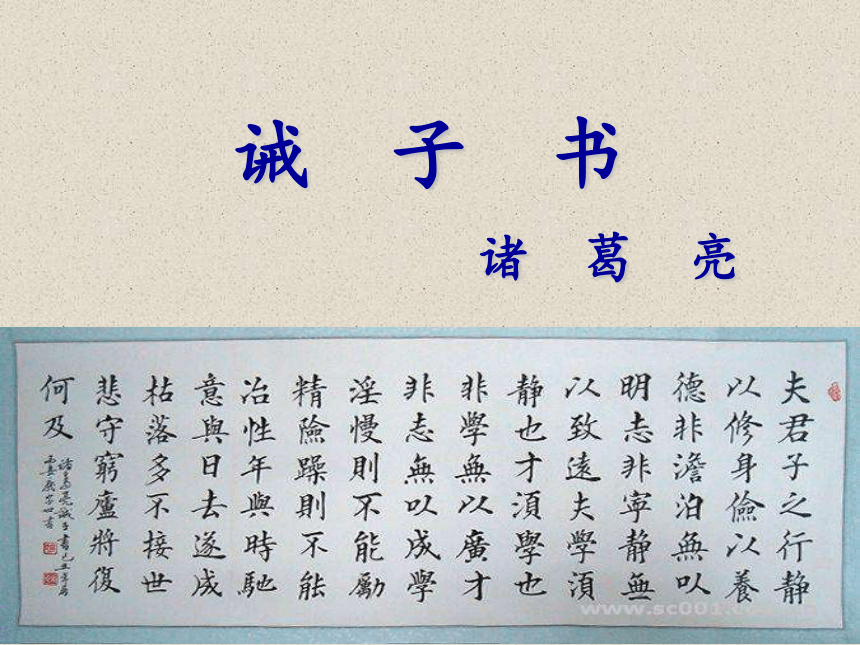 诫 子 书
诸 葛 亮
夫君子之行静
以修身儉以養
德非澹泊無以
明志非寧静無
以致遠夫學須
静也才須學也
非學無以廣才
非志無以成學
淫慢則不能勵
精險躁則不能
冶性年與時馳
意與日去遂成
枯落多不接世
悲守窮廬將復
何及
諸葛亮誡子書己丑年
www.sc001.co